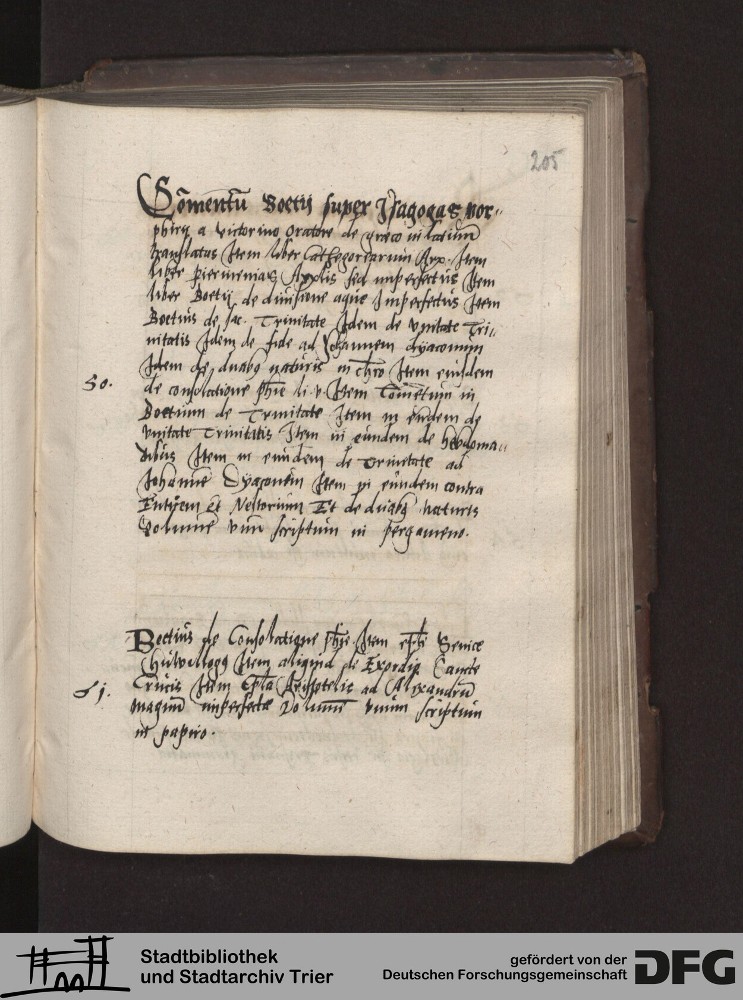 205
Com̄entū Boetij super Isagogas por-
phirij a victorino oratore de greco in latinum
translatas Item liber Cathegoriarum Item
liber sed imperfectus Item
liber Boetij de diuisione Imperfectus Item
Boetius de Trinitate Idem de vnitate Tri-
nitatis Idem de fide ad Iohannem dyaconum
Idem de duabꝫ naturis in Item eiusdem
50.
de consolatione li v Item Comētum in
Boetium de Trinitate Item in eundem de
vnitate Trinitatis Item in eundem de hebdoma-
dibus Item in eundem de Trinitate ad
Iohannē Dyaconem Item in eundem contra
Eutycem et Nestorium Et de duabꝫ naturis
Volumē vnū scriptum in pergameno.
Boetius de Consolatione Item
Item aliquid de Exordio Sancte
51.
Crucis Item Aristotelis ad Alexandrū
magnū imperfecta Volumē vnum scriptum
in papiro.
Stadtbibliothek
und Stadtarchiv Trier
gefördert von der
Deutschen Forschungsgemeinschaft
DFG